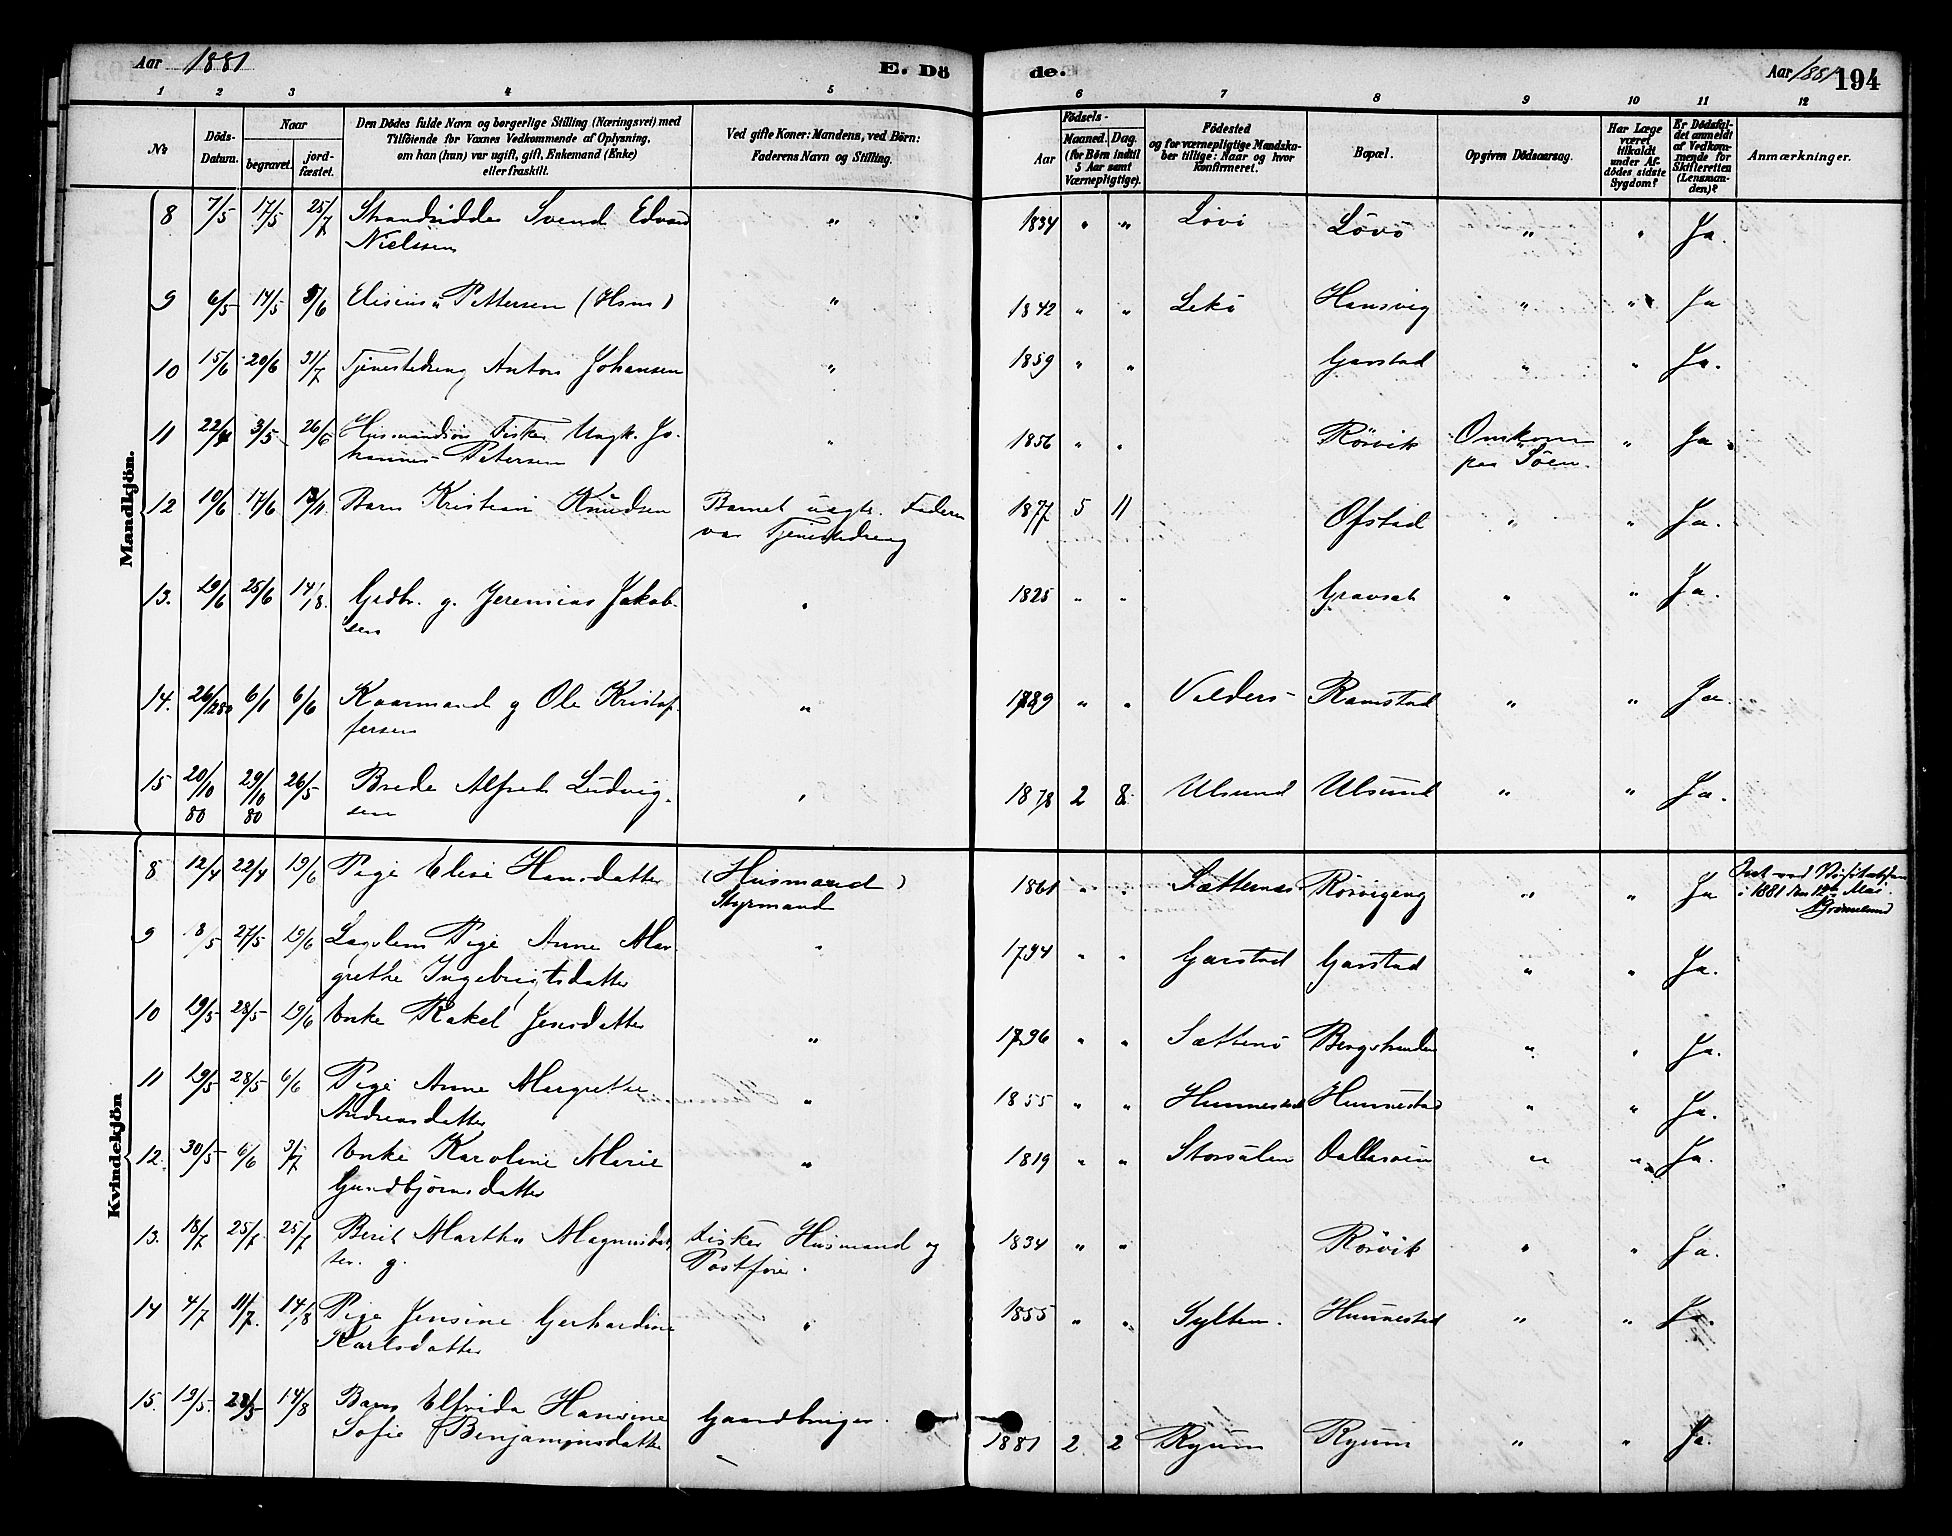 Aar 1881
E. Dö
de.
Aar 1881
194
1 2 3 4 5 6 7 8 9 10 11 12
No
Döds-Datum.
Naar
begravet.
jord-fæstet.
Den Dödes fulde Navn og borgerlige Stilling (Næringsvei) med
Tilföiende for Voxnes Vedkommende af Oplysning,
om han (hun) var ugift, gift, Enkemand (Enke)
eller fraskilt.
Ved gifte Koner: Mandens, ved Börn:
Faderens Navn og Stilling.
Födsels-
Aar
Maaned. Dag.
(for Börn indtil
5 Aar samt
Værnepligtige).
Födested
og for værnepligtige Mandska-
ber tillige: Naar og hvor
konfirmeret.
Bopæl.
Opgiven Dödsaarsag.
Har Læge
været
tilkaldt
under Af-
dödes sidste
Sygdom?
Er Dödsfal-
det anmeldt
af Vedkom-
mende for
Skifteretten
(Lensman-
den)?
Anmærkninger.
Mandkjön.
8 7/5 17/5 25/7 Strandsidder Svend Edvard " 1834 " " Lövö Lövö " " Ja.
Nielssen
9 6/5 14/5 5/6 Elisæus Pettersen (Hsm) " 1842 " " Lekö Hansvig " " Ja
10 15/6 20/6 31/7 Tjenestedreng Anton Johansen " 1859 " " Garstad " " Ja.
11 22/4 3/5 26/6 Husmandsön Fisker Ungk. Jo- " 1856 " " Rörvik Omkom " Ja.
hannes Petersen paa Söen.
12 10/6 17/6 13/11 Barn Kristian Knudsen Barnet uægte. Faderen 1877 5 11 Ofstad " " Ja.
var Tjenestedreng
13. 19/6 25/6 14/8. Grdbr. g. Jeremias Jakob- " 1825 " " Gravset " " Ja.
sen
14. 26/12 80 6/1 6/6 Kaarmand g Ole Kristof- " 1789 " " Valders Ramstad " " Ja.
fersen
15 20/10 80 29/10 80 26/5 Brede Alfred Ludvig- " 1878 2 8 Ulsund Ulsund " " Ja.
sen
Kvindekjön
8 12/4 22/4 19/6 Pige Elise Hansdatter (Husmand) 1861 " " Sætternes Rörvigeng " " Ja
Styrmand
i 1881 den 12te Mai
9 8/5 27/5 19/6 Lægdslem Pige Anne Mar- " 1794 " " Garstad Garstad " " Ja.
grethe Ingebrigtsdatter
10 19/5 28/5 19/6 Enke Rakel Jensdatter " 1796 " " Sætternö Bergstranden " " Ja.
11 19/5 28/5 6/6 Pige Anne Margrethe " 1855 " " Hunnestad Hunnestad " " Ja.
Andreasdatter
12. 30/5 6/6 3/7 Enke Karoline Marie " 1819 " " Storsålen " " Ja.
Gundbjörnsdatter
13. 18/7 25/7 25/7 Berit Martha Magnusdat- Fisker Husmand og 1834 " " Rörvik " " Ja.
ter. g. Postfører.
14 4/7 11/7. 14/8 Pige Jensine Gerhardine " 1855 " " Sylten. Hunnestad " " Ja.
Karlsdatter
15. 19/5. 28/5 14/8 Barn Elfrida Hansine Gaardbruger. 1881 2 2 Ryum Ryum " " Ja.
Sofie Benjaminsdatter